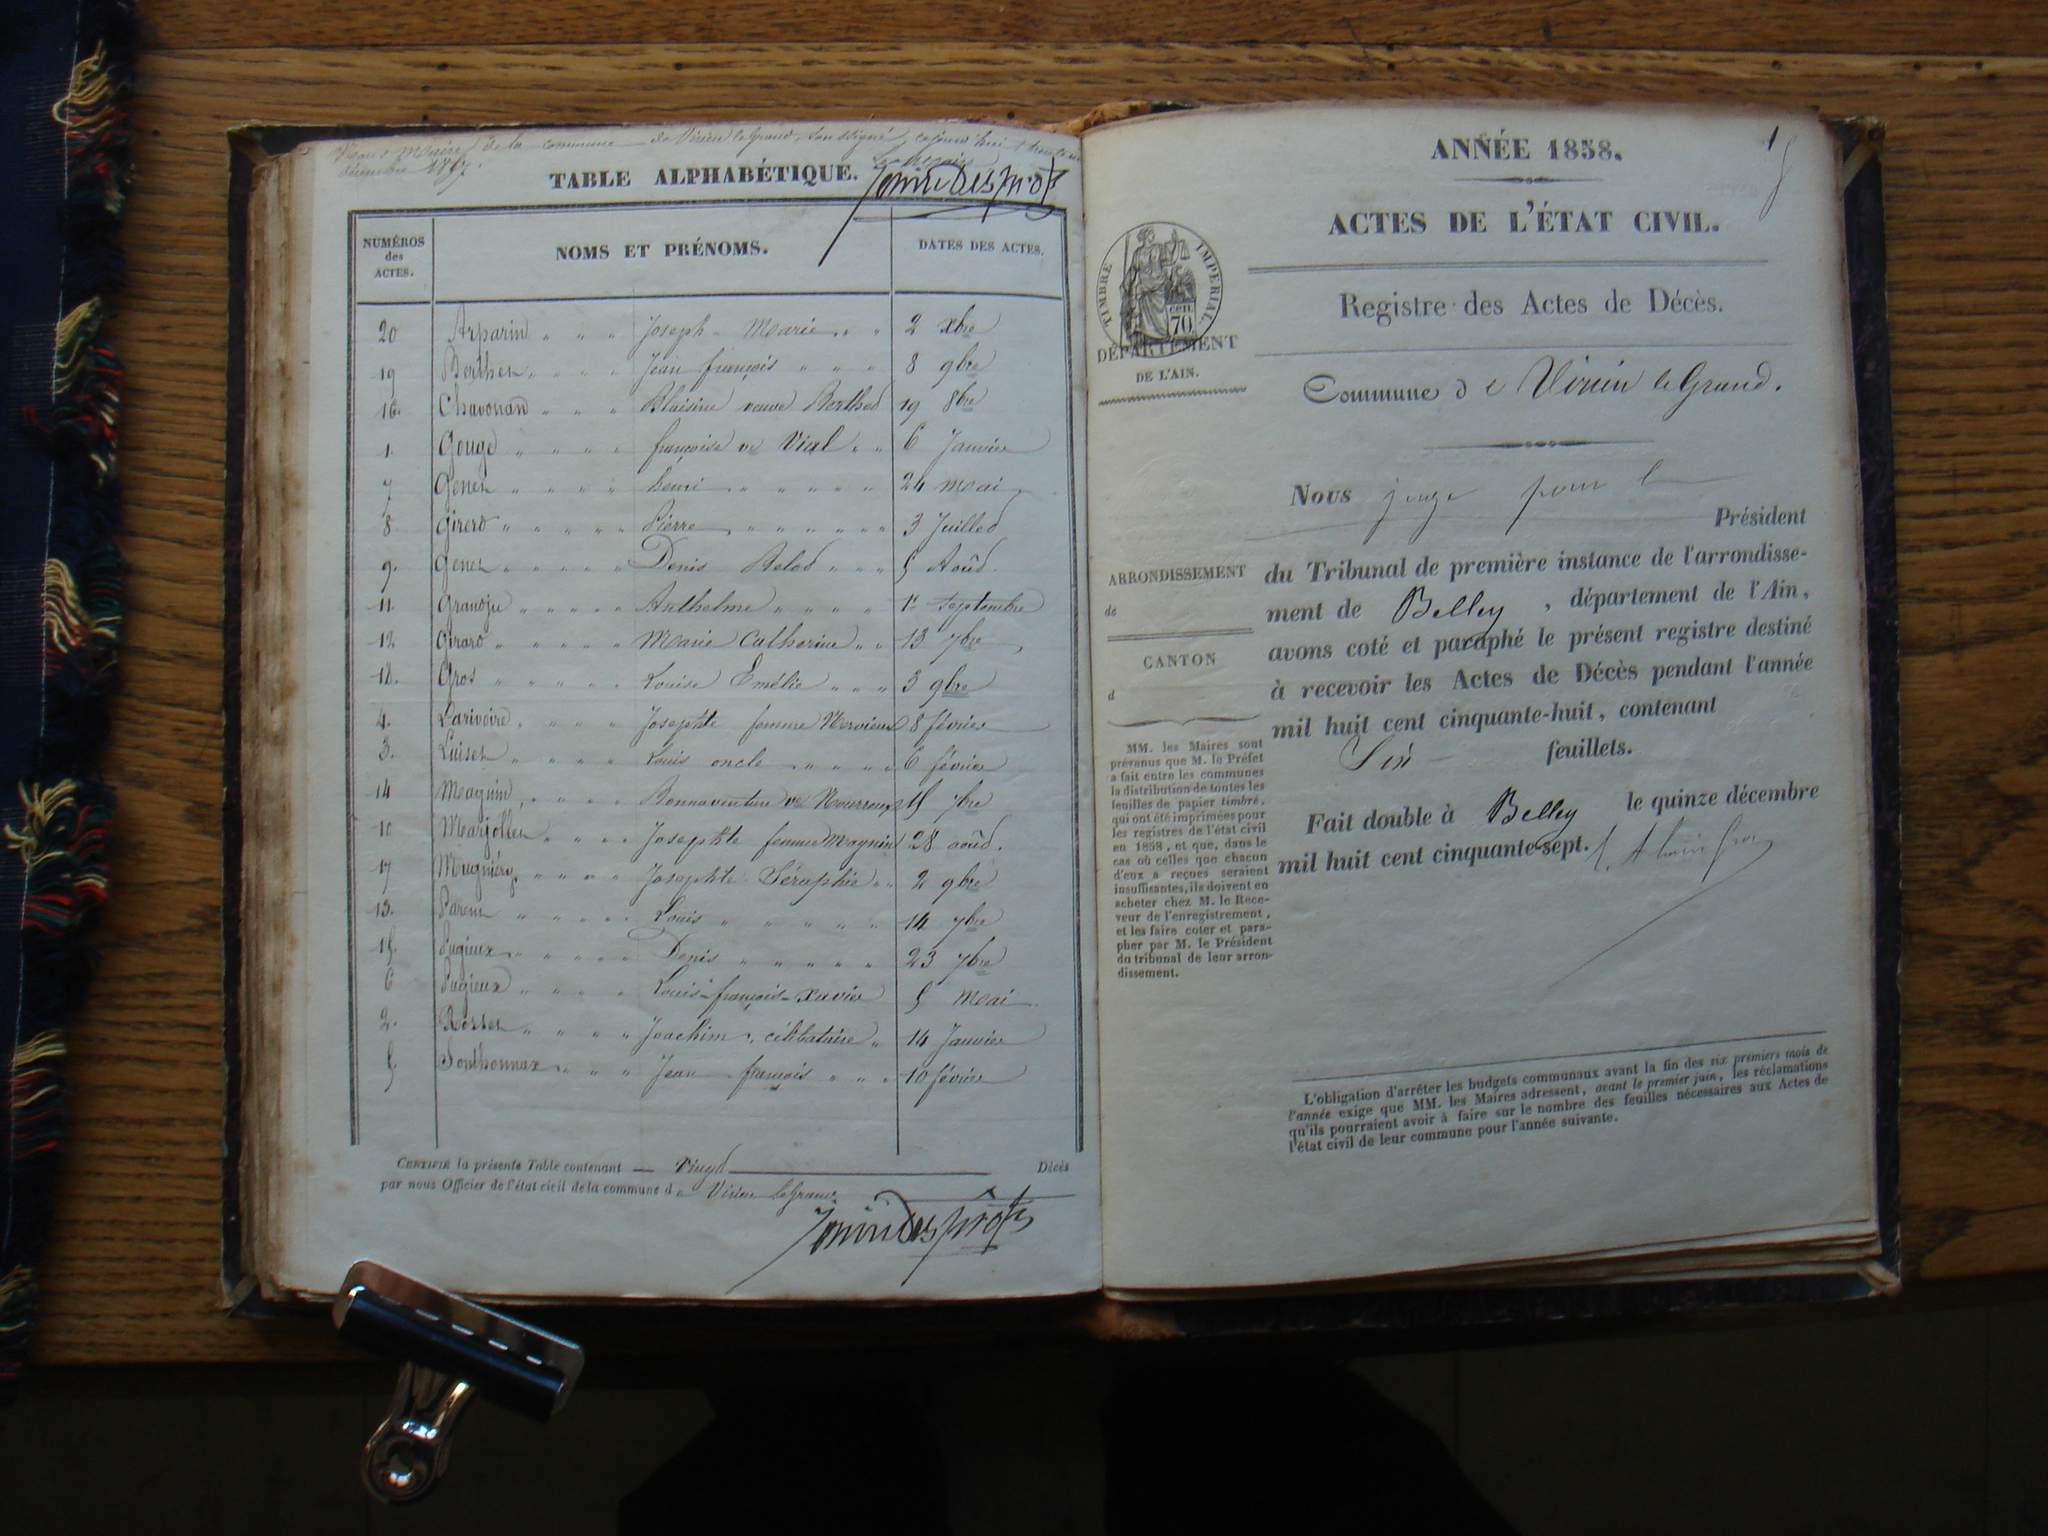 de la commune de Virieu le Grand, soussigné
décembre 1857.
TABLE ALPHABÉTIQUE.
NUMÉROS des ACTES. NOMS ET PRÉNOMS. DATES DES ACTES.
20 Arparin " " " Joseph-Marie " " 2 Xbre
19 Berthet " " " " Jean françois " " " 8 9bre
16. " " " Blaisine veuve Berthet 19 8bre
1. Gouge " " " " françoise ve Vial " " 6 Janvier
7 Genet " " " " henri " " " " " 24 mai
8 Girerd " " " " " Pierre " " " " " " 3 Juillet
9. Genet " " " " " Denis " " " 5 Août
11. Grandju " " " " " Anthelme " " " " 1er septembre
12 Girard " " " " " Marie Catherine " " 13 7bre
18. Gros " " " " " Louise Emélie " " " 3 9bre
4. Larivoire " " " " Josephte femme 8 février
3. Luiset " " " " Louis oncle " " " " 6 février
14 Magnin " " " " Bonnaventure ve 15 7bre
10 Marjollet " " " " Josephte femme Magnin 28 août.
17 Mugniéry " " " " Josephte Séraphie " " 2 9bre
13. Parent " " " " " Louis " " " " " " 14 7bre
15. Pugieux " " " " " Denis " " " " " 23 7bre
6 Pugieux " " " " Louis-françois-xavier 5 Mai
2. Rosset " " " " " Joachim, célibataire " 14 Janvier
5. Sonthonnax " " " " Jean françois " " " 10 février
CERTIFIÉ la présente Table contenant — Vingt Décès
par nous Officier de l'état civil de la commune de Virieu le Grand
1
ANNÉE 1858.
ACTES DE L'ÉTAT CIVIL.
TIMBRE IMPÉRIAL
CEN. 70
DÉPARTEMENT
DE L'AIN.
Registre des Actes de Décès.
Commune de Virieu le Grand.
Nous juge pour le
Président
du Tribunal de première instance de l'arrondisse-
ment de Belley, département de l'Ain,
avons coté et paraphé le présent registre destiné
à recevoir les Actes de Décès pendant l'année
mil huit cent cinquante-huit, contenant
Six feuillets.
Fait double à Belley le quinze décembre
mil huit cent cinquante-sept.
ARRONDISSEMENT
de
CANTON
d
MM. les Maires sont
prévenus que M. le Préfet
a fait entre les communes
la distribution de toutes les
feuilles de papier timbré,
qui ont été imprimées pour
les registres de l'état civil
en 1858, et que, dans le
cas où celles que chacun
d'eux a reçues seraient
insuffisantes, ils doivent en
acheter chez M. le Rece-
veur de l'enregistrement,
et les faire coter et para-
pher par M. le Président
du tribunal de leur arron-
dissement.
L'obligation d'arrêter les budgets communaux avant la fin des six premiers mois de
l'année exige que MM. les Maires adressent, avant le premier juin, les réclamations
qu'ils pourraient avoir à faire sur le nombre des feuilles nécessaires aux Actes de
l'état civil de leur commune pour l'année suivante.